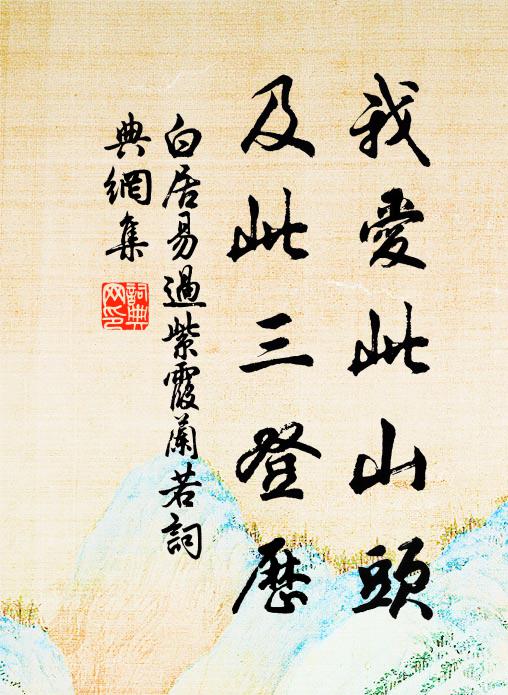 我愛此山頭
及此三登歷
白居易過紫霞蘭若詞
典網集
詞典網印